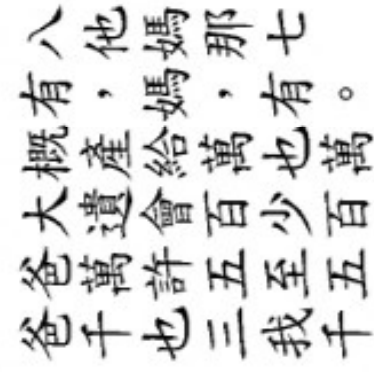 爸爸大概有八
千萬遺產，他
也許會給媽媽
三五百萬，那
我至少也有七
千五百萬。